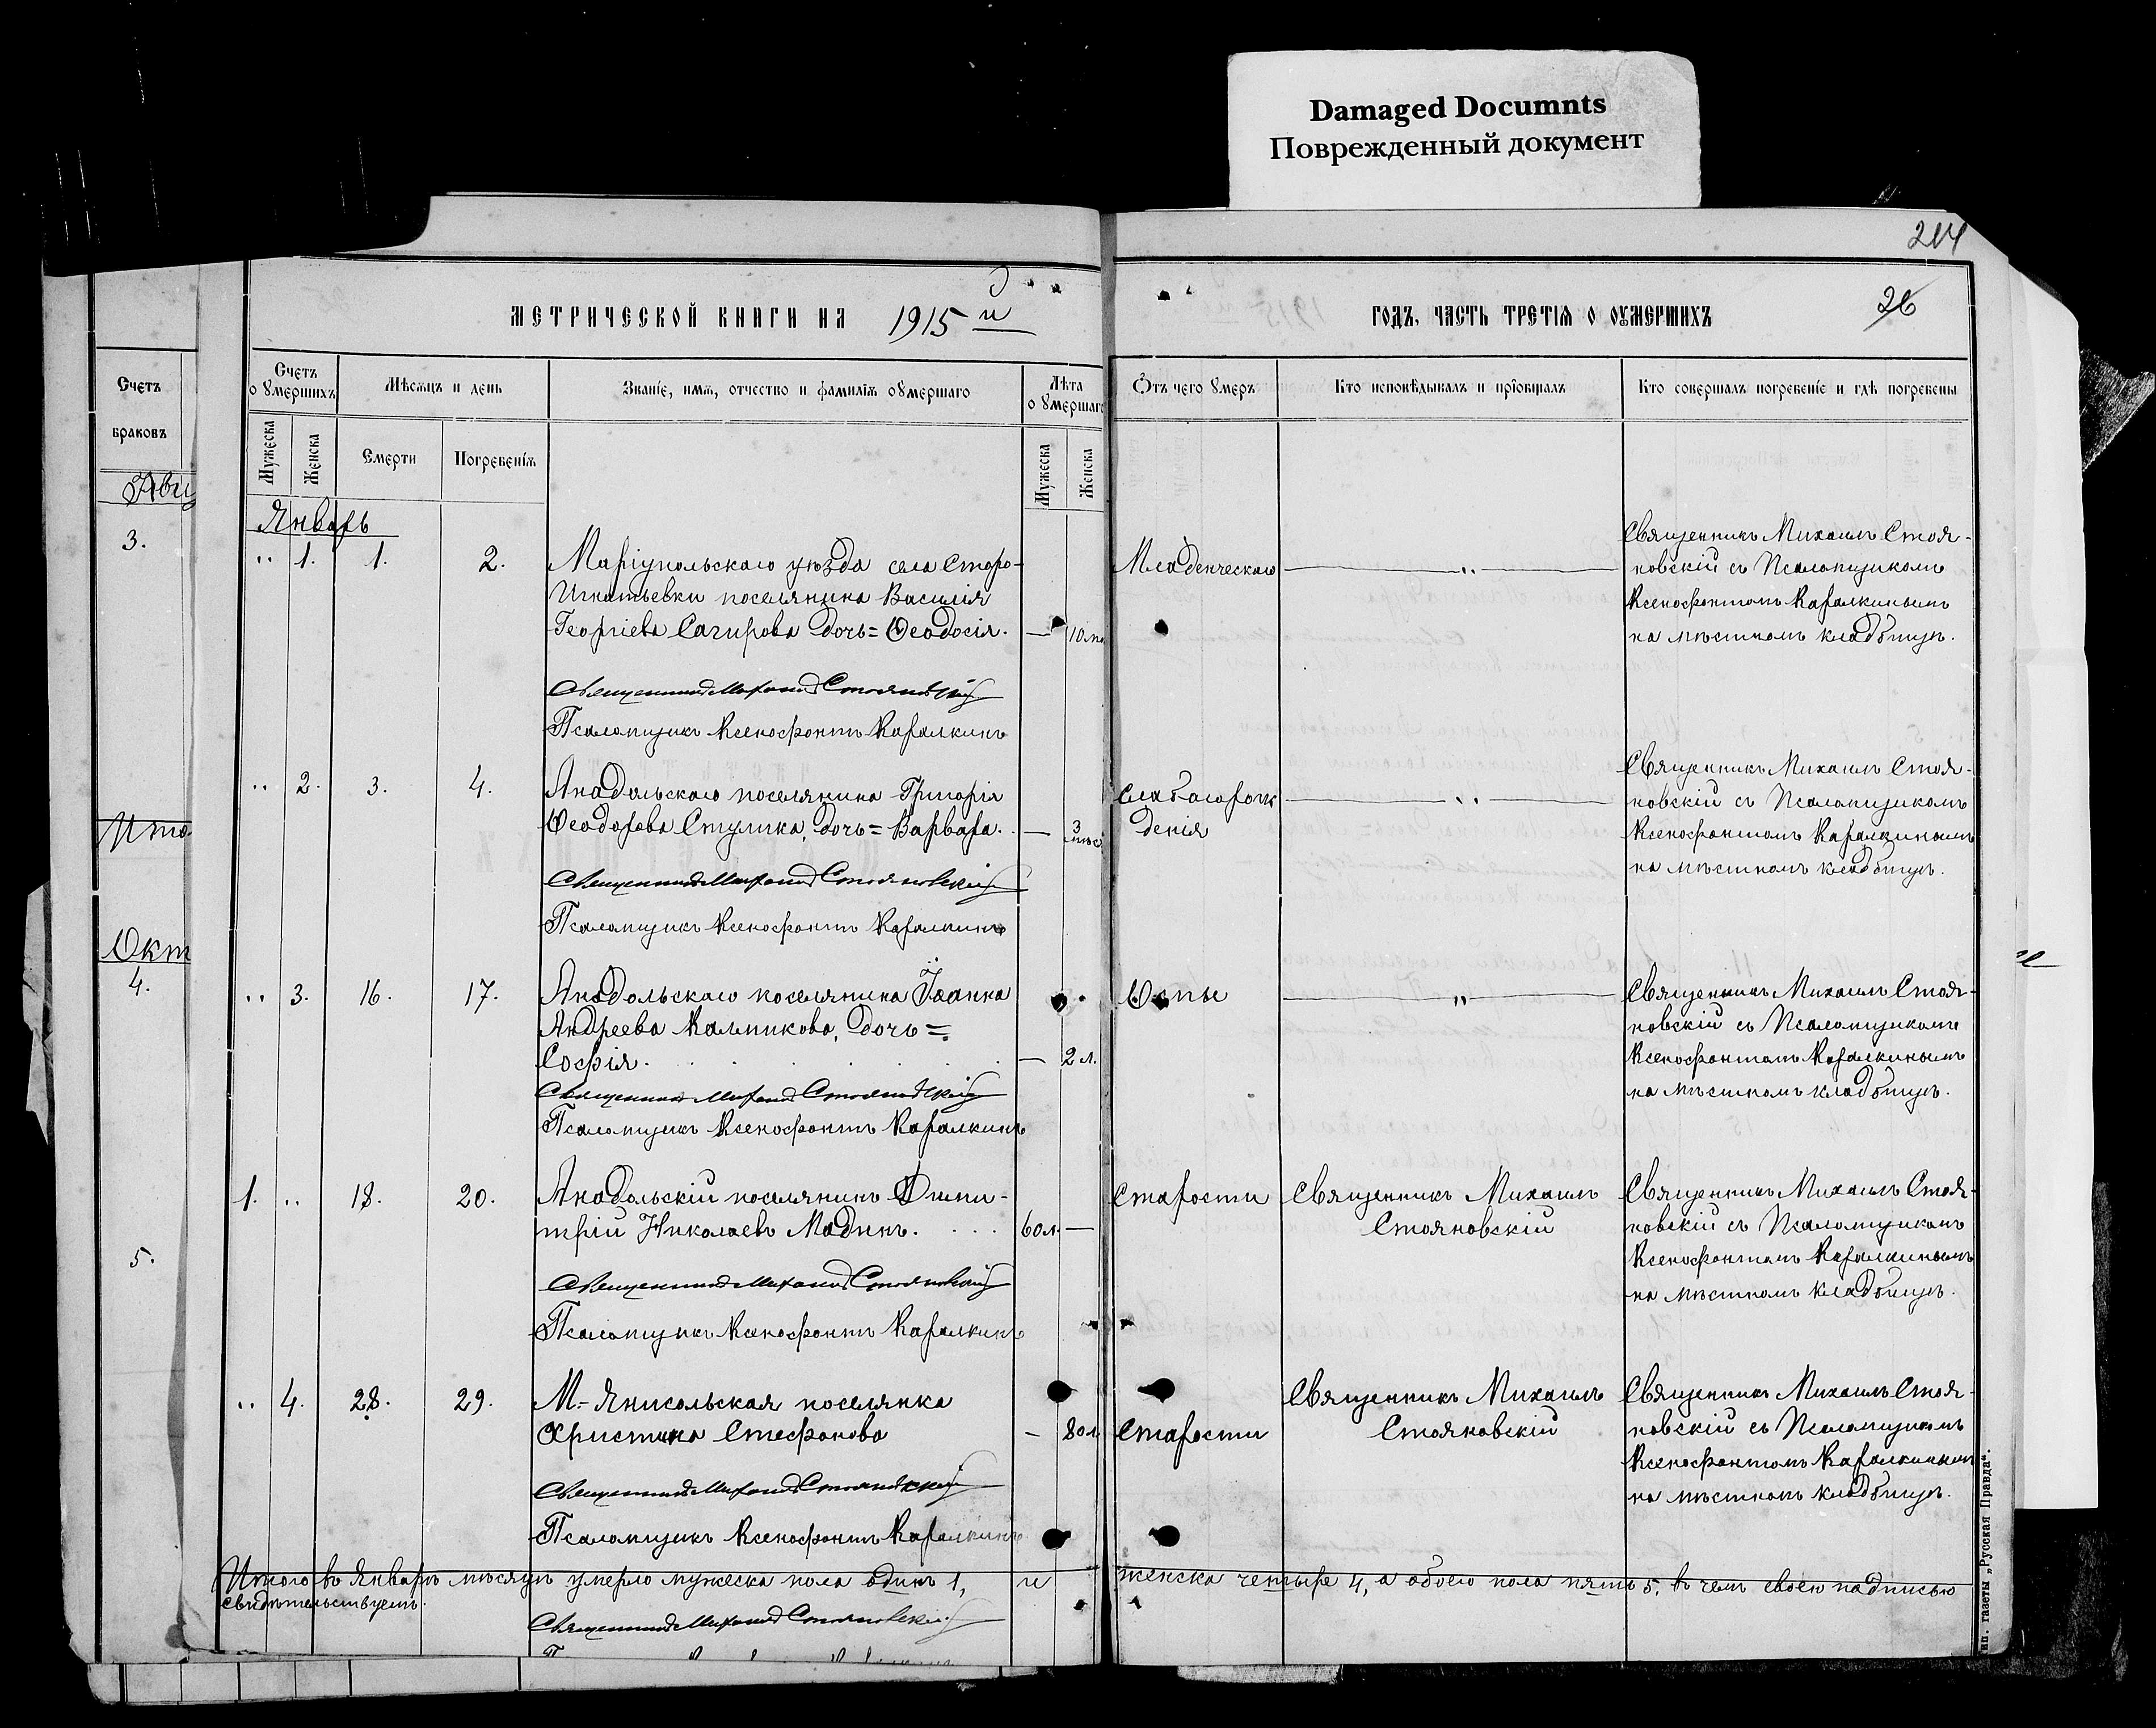 Damaged Documnts
Поврежденный документ
214
МЕТРИЧЕСКОЙ КНИГИ НА 1915 й
ГОДЪ, ЧАСТЬ ТРЕТІѦ О ОУМЕРШИХЪ
26
Счетъ
браковъ
3.
Ито
Окт
4.
5.
Счетъ
оумершихъ
Мѣсѧцъ и день
Званіе, имѧ, отчество и фамиліѧ оумершаго
Лѣта
оумершаго
Отъ чего умеръ
Кто исповѣдывалъ и пріобщалъ
Кто совершалъ погребеніе и гдѣ погребены
Мужеска
Женска
Смерти
Погребеніѧ
Мужеска
Женска
Январь
1. 1. 2. Маріупольскаго уѣзда села Старо-
Игнатьевки поселянина Василія
Георгіева Сагирова дочь = Ѳеодосія. — 10 м
Младенческаго — „ —
Священникъ Михаилъ Стоя-
новскій съ Псаломщикомъ
Ксенофонтомъ Каралкинымъ
на мѣстномъ кладбищѣ.
Священникъ Михаилъ Стояновскій
Псаломщикъ Ксенофонтъ Каралкинъ
„ 2. 3. 4. Анадольскаго поселянина Григорія
Ѳеодорова Стулика, дочь = Варвара. — 3 мѣс
Слабаго рож
денія — „ —
Священникъ Михаилъ Стоя-
новскій съ Псаломщикомъ
Ксенофонтомъ Каралкинымъ
на мѣстномъ кладбищѣ.
Священникъ Михаилъ Стояновскій
Псаломщикъ Ксенофонтъ Каралкинъ
„ 3. 16. 17. Анадольскаго поселянина Іоанна
Андреева Калмикова, дочь =
Софія. — 2 л.
Оспы — „ —
Священникъ Михаилъ Стоя-
новскій съ Псаломщикомъ
Ксенофонтомъ Каралкинымъ
на мѣстномъ кладбищѣ.
Священникъ Михаилъ Стояновскій
Псаломщикъ Ксенофонтъ Каралкинъ
1. „ 18. 20. Анадольскій поселянинъ Дими-
трій Николаевъ Мадинъ. 60 л. —
Старости
Священникъ Михаилъ
Стояновскій
Священникъ Михаилъ Стоя-
новскій съ Псаломщикомъ
Ксенофонтомъ Каралкинымъ
на мѣстномъ кладбищѣ.
Священникъ Михаилъ Стояновскій
Псаломщикъ Ксенофонтъ Каралкинъ
„ 4. 28. 29. М.-Янисольская поселянка
Христина Стефанова — 80 л
Старости
Священникъ Михаилъ
Стояновскій
Священникъ Михаилъ Стоя-
новскій съ Псаломщикомъ
Ксенофонтомъ Каралкинымъ
на мѣстномъ кладбищѣ.
Священникъ Михаилъ Стояновскій
Псаломщикъ Ксенофонтъ Каралкинъ
Итого въ Январѣ мѣсяцѣ умерло мужеска пола одинъ 1, и женска четыре 4, а обоего пола пять 5, въ чемъ своею надписью
свидѣтельствуемъ.
Священникъ Михаилъ Стояновскій
ип. газеты „Русская Правда“.